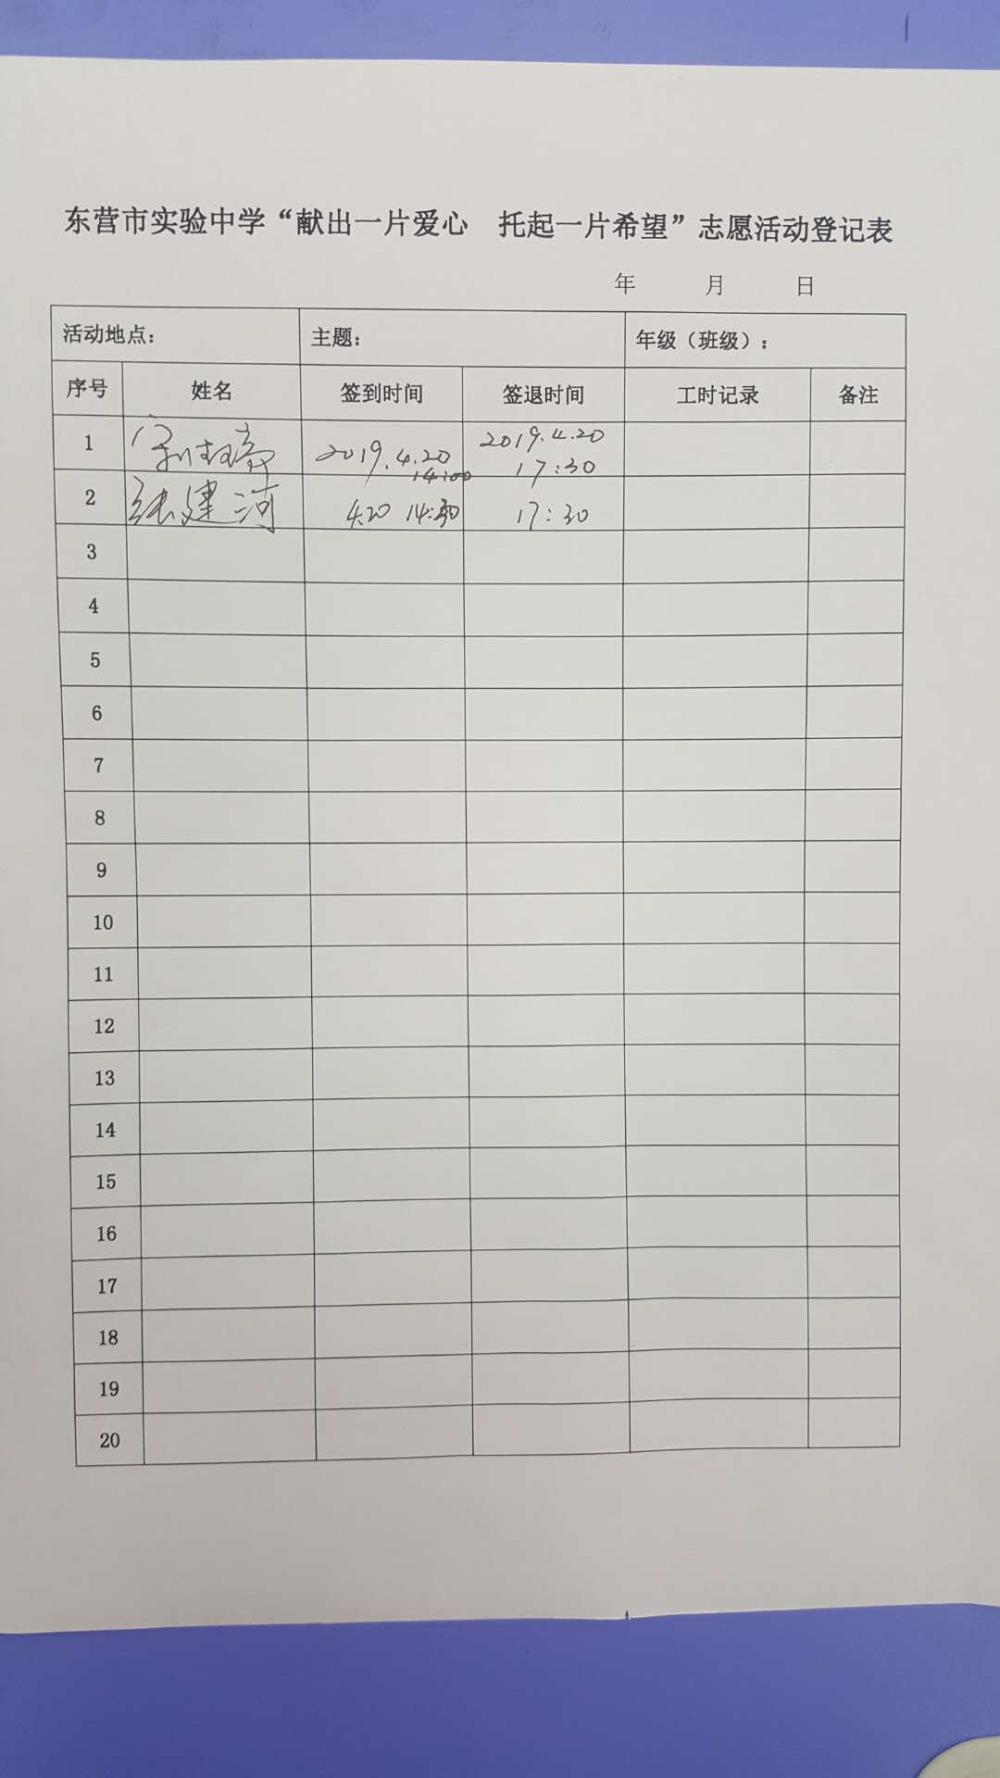 东营市实验中学“献出一片爱心 托起一片希望”志愿活动登记表
年 月 日
活动地点： 主题： 年级（班级）：
序号 姓名 签到时间 签退时间 工时记录 备注
1 2019.4.20 14:00 2019.4.20 17:30
2 张建河 4.20 14:30 17:30
3
4
5
6
7
8
9
10
11
12
13
14
15
16
17
18
19
20